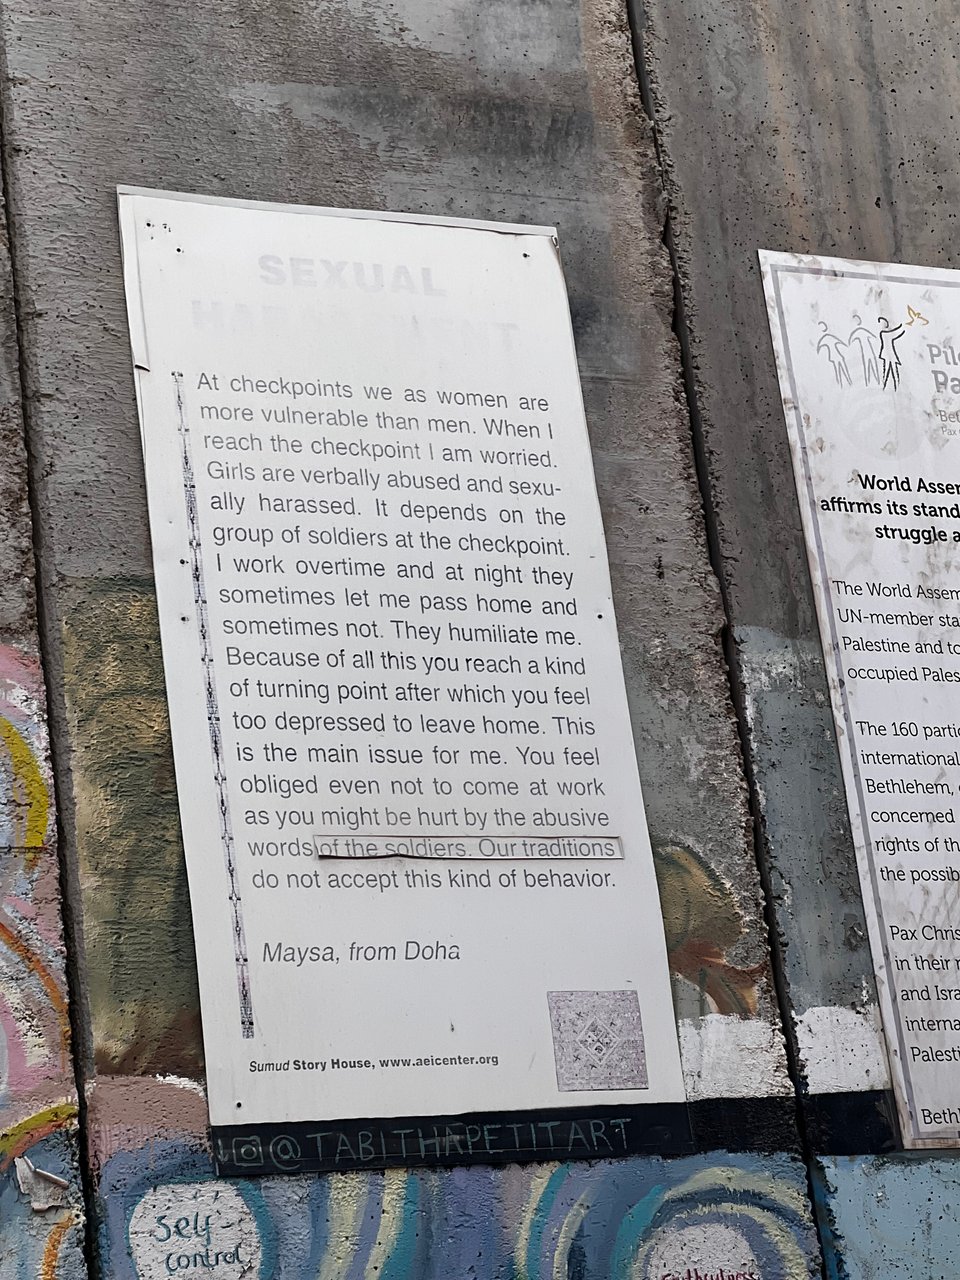 SEXUAL
HARASSMENT
At checkpoints we as women are
more vulnerable than men. When I
reach the checkpoint I am worried.
Girls are verbally abused and sexu-
ally harassed. It depends on the
group of soldiers at the checkpoint.
I work overtime and at night they
sometimes let me pass home and
sometimes not. They humiliate me.
Because of all this you reach a kind
of turning point after which you feel
too depressed to leave home. This
is the main issue for me. You feel
obliged even not to come at work
as you might be hurt by the abusive
words of the soldiers. Our traditions
do not accept this kind of behavior.
Maysa, from Doha
Sumud Story House, www.aeicenter.org
@TABITHAPETITART
Self-
control
World Assem
affirms its stand
struggle a
The World Assem
UN-member sta
Palestine and to
occupied Pales
The 160 partic
international
Bethlehem,
concerned
rights of th
the possib
Pax Chris
in their
and Isra
interna
Palesti
Bethl